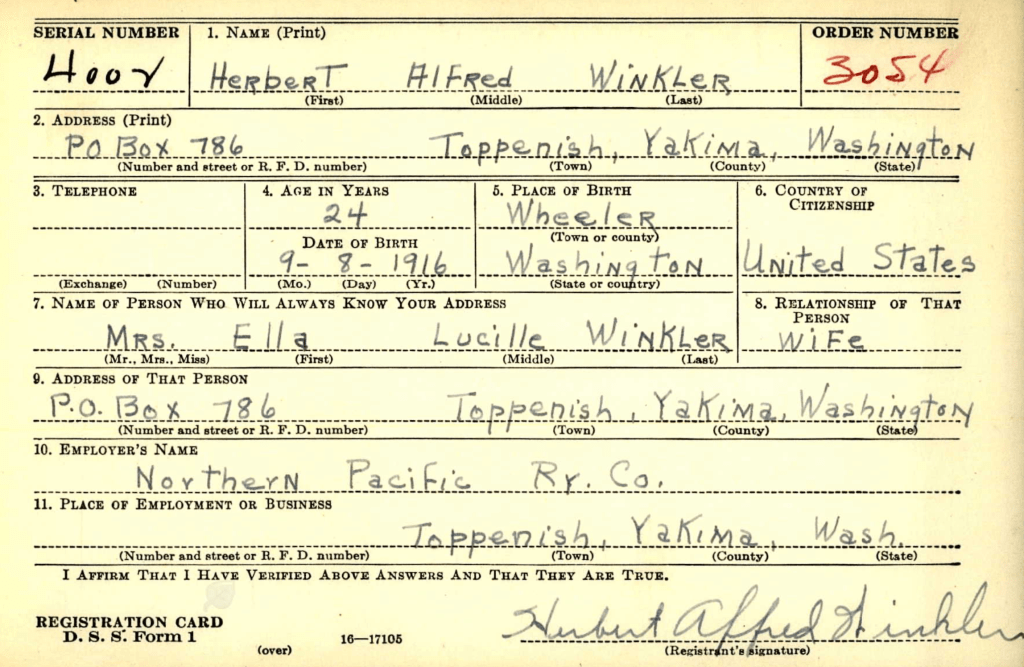 SERIAL NUMBER 1. NAME (Print) ORDER NUMBER
HERbERT AlFRed WiNKLER 3054
(First) (Middle) (Last)
2. ADDRESS (Print)
PO Box 786 Toppenish, YaKiMa, WashiNgtoN
(Number and street or R. F. D. number) (Town) (County) (State)
3. TELEPHONE 4. AGE IN YEARS 5. PLACE OF BIRTH 6. COUNTRY OF CITIZENSHIP
24 WheeleR
DATE OF BIRTH (Town or county)
9- 8- 1916 WashingtoN UNited States
(Exchange) (Number) (Mo.) (Day) (Yr.) (State or country)
7. NAME OF PERSON WHO WILL ALWAYS KNOW YOUR ADDRESS 8. RELATIONSHIP OF THAT PERSON
MRS. Ella Lucille WiNKLER WiFe
(Mr., Mrs., Miss) (First) (Middle) (Last)
9. ADDRESS OF THAT PERSON
P.O. Box 786 Toppenish, YaKiMa, WashiNgtoN
(Number and street or R. F. D. number) (Town) (County) (State)
10. EMPLOYER'S NAME
Northern Pacific Ry. Co.
11. PLACE OF EMPLOYMENT OR BUSINESS
Toppenish, YaKiMa, Wash.
(Number and street or R. F. D. number) (Town) (County) (State)
I AFFIRM THAT I HAVE VERIFIED ABOVE ANSWERS AND THAT THEY ARE TRUE.
Herbert Alfred Winkler
REGISTRATION CARD
D. S. S. Form 1 16—17105 (Registrant's signature)
(over)